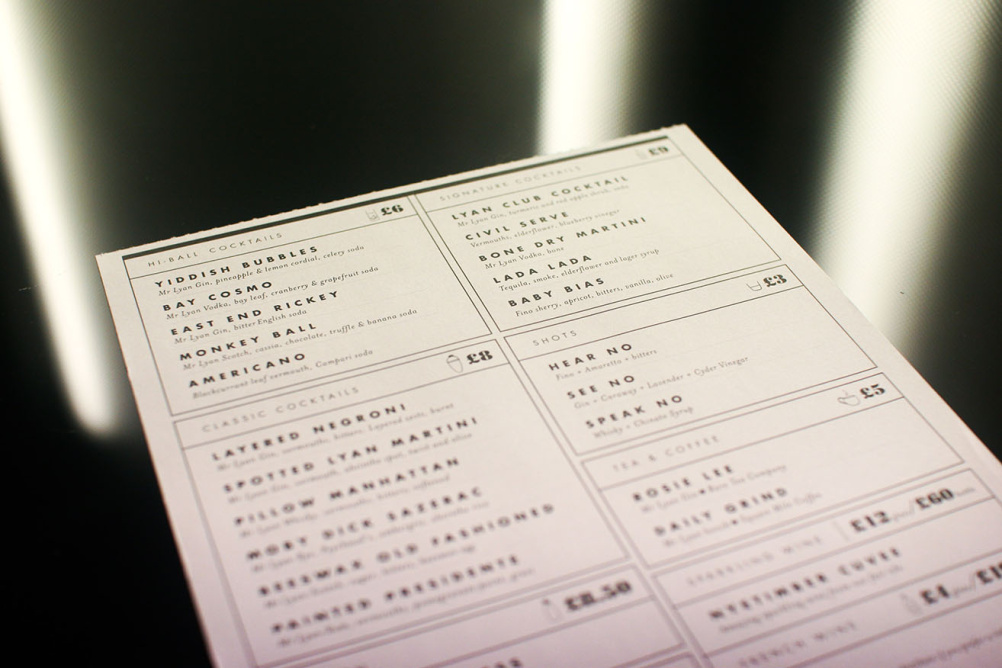 HI-BALL COCKTAILS £6
YIDDISH BUBBLES
Mr Lyan Gin, pineapple & lemon cordial, celery soda
BAY COSMO
Mr Lyan Vodka, bay leaf, cranberry & grapefruit soda
EAST END RICKEY
Mr Lyan Gin, bitter English soda
MONKEY BALL
Mr Lyan Scotch, cassia, chocolate, truffle & banana soda
AMERICANO
Blackcurrant leaf vermouth, Campari soda
CLASSIC COCKTAILS £8
LAYERED NEGRONI
Mr Lyan Gin, vermouths, bitters, Layered
SPOTTED LYAN MARTINI
Mr Lyan Gin, vermouth, absinthe spot, twist and olive
PILLOW MANHATTAN
Mr Lyan Whisky, vermouths, bitters,
MOBY DICK SAZERAC
BEESWAX OLD FASHIONED
PAINTED PRESIDENTE
£11.50
SIGNATURE COCKTAILS £9
LYAN CLUB COCKTAIL
Mr Lyan Gin, turmeric and red apple shrub, soda
CIVIL SERVE
Vermouths, elderflower, blueberry vinegar
BONE DRY MARTINI
Mr Lyan Vodka, bone
LADA LADA
Tequila, smoke, elderflower and lager syrup
BABY BIAS
Fino sherry, apricot, bitters, vanilla, olive
SHOTS £3
HEAR NO
Fino + Amaretto + bitters
SEE NO
Gin + Caraway + Lavender + Cyder Vinegar
SPEAK NO
Whisky + Chinato Syrup
TEA & COFFEE £5
ROSIE LEE
DAILY GRIND
SPARKLING WINE £12 £60
NYETIMBER CUVEE
FRENCH WINE £4